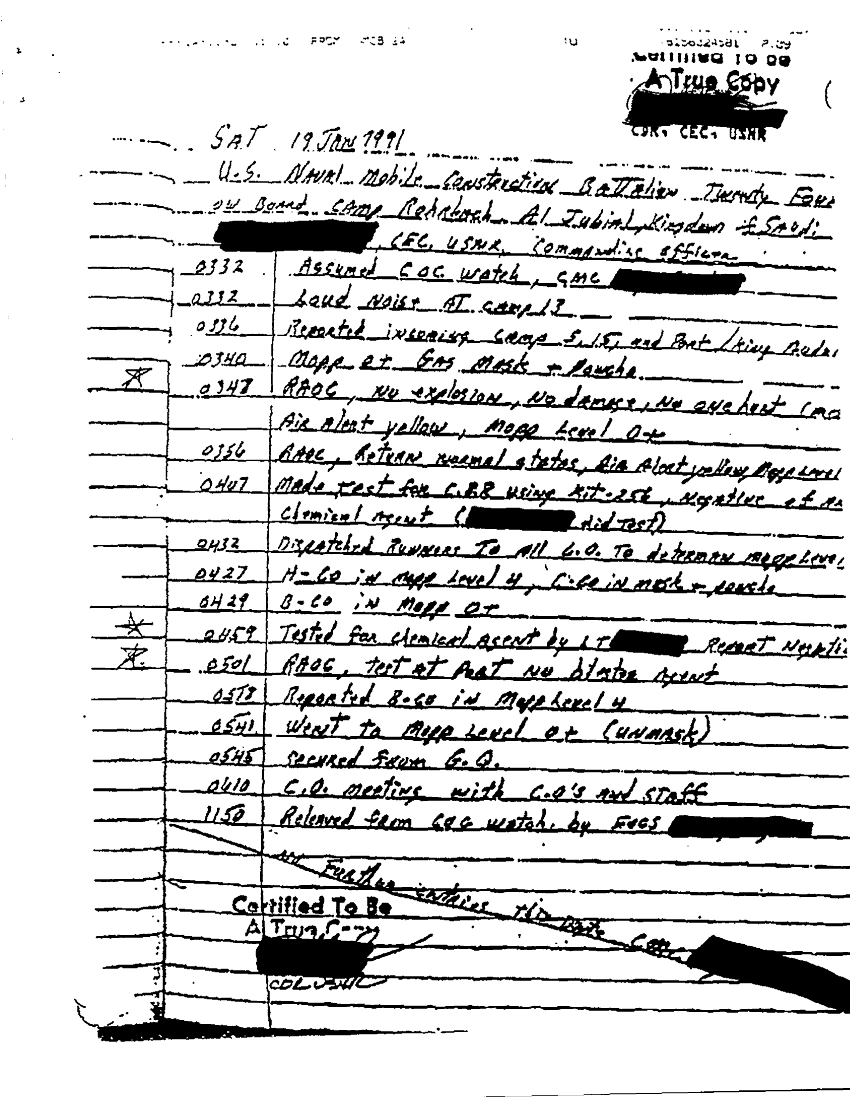 FROM
TO
6156024581 P.09
Certified To Be
A True Copy
CDR, CEC, USNR
SAT 19 JAN 1991
U.S. Naval Mobile Construction Battalion Twenty Four
on Board CAMP Rohrbach Al Jubial, Kingdom of SAudi
, CEC, USNR, Commanding officer
0332 Assumed COC watch, CMC
0332 Loud Noise AT camp 13
0336 Reported incoming camp 5, 15, and Port / King
0340 Mopp 0+ GAS MASK + Poncho
0347 RAOC, No explosion, No damage, No one hurt
Air Alert yellow, Mopp Level 0+
0356 RAOC, Return normal status, Air Alert yellow Mopp Level
0407 Made test for C.B.R using Kit-256, Negative of
Chemical Agent ( did Test)
0432 Dispatched Runners To All C.O. To determan mopp Level
0427 H-Co in Mopp Level 4, C-Co in mask + poncho
0429 B-CO in Mopp 0+
0459 Tested for chemical Agent by LT Report
0501 RAOC, test AT Port No blister Agent
Reported B-Co in Mopp Level 4
0541 Went to Mopp Level 0+ (UNMASK)
0545 secured from G.Q.
0610 C.O. meeting with C.O's and STAFF
1150 Releaved from COC watch. by
No Further entries this Date
Certified To Be
A True Copy
CDR USNR